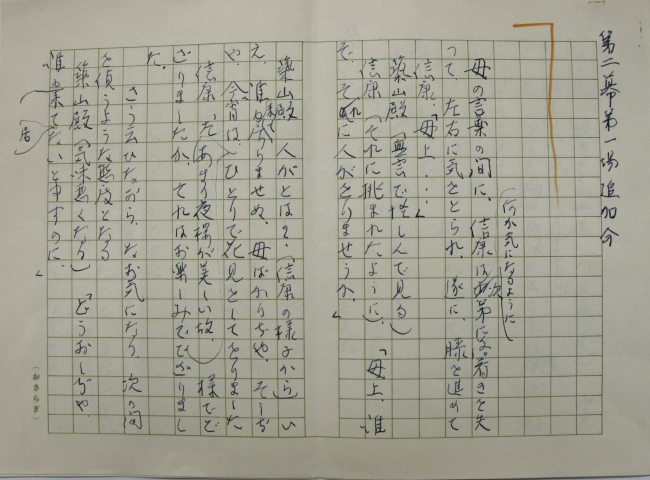 第二幕第一場追加分
(何か気になるように)
母の言葉の間に、信康は次第に落着きを失
って、左右に気をとられ、遂に、膝を進めて
信康「母上‥‥」
築山殿(無言で怪しんで見る)
信康(それに挑まれたように)「母上、誰
ぞ、それに人がをりませうか。」
築山殿「人がとは?(信康の様子から)い
え、誰も居りませぬ。母ばかりぢや。そうぢ
や、今宵は、ひとりで花見としてをりました
信康「(あまり夜桜が美しい故、)様でご
ざりましたか。それはお楽しみでござりまし
た。
さう云ひながら、なお気になり、次の間
を偵うような態度となる
築山殿(気味悪くなり)「どうおしぢや、
誰も居てないと申すのに。」